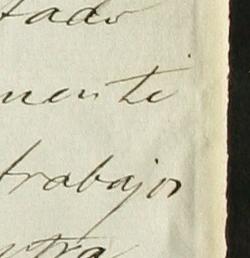 tado
mente
trabajos
ntra